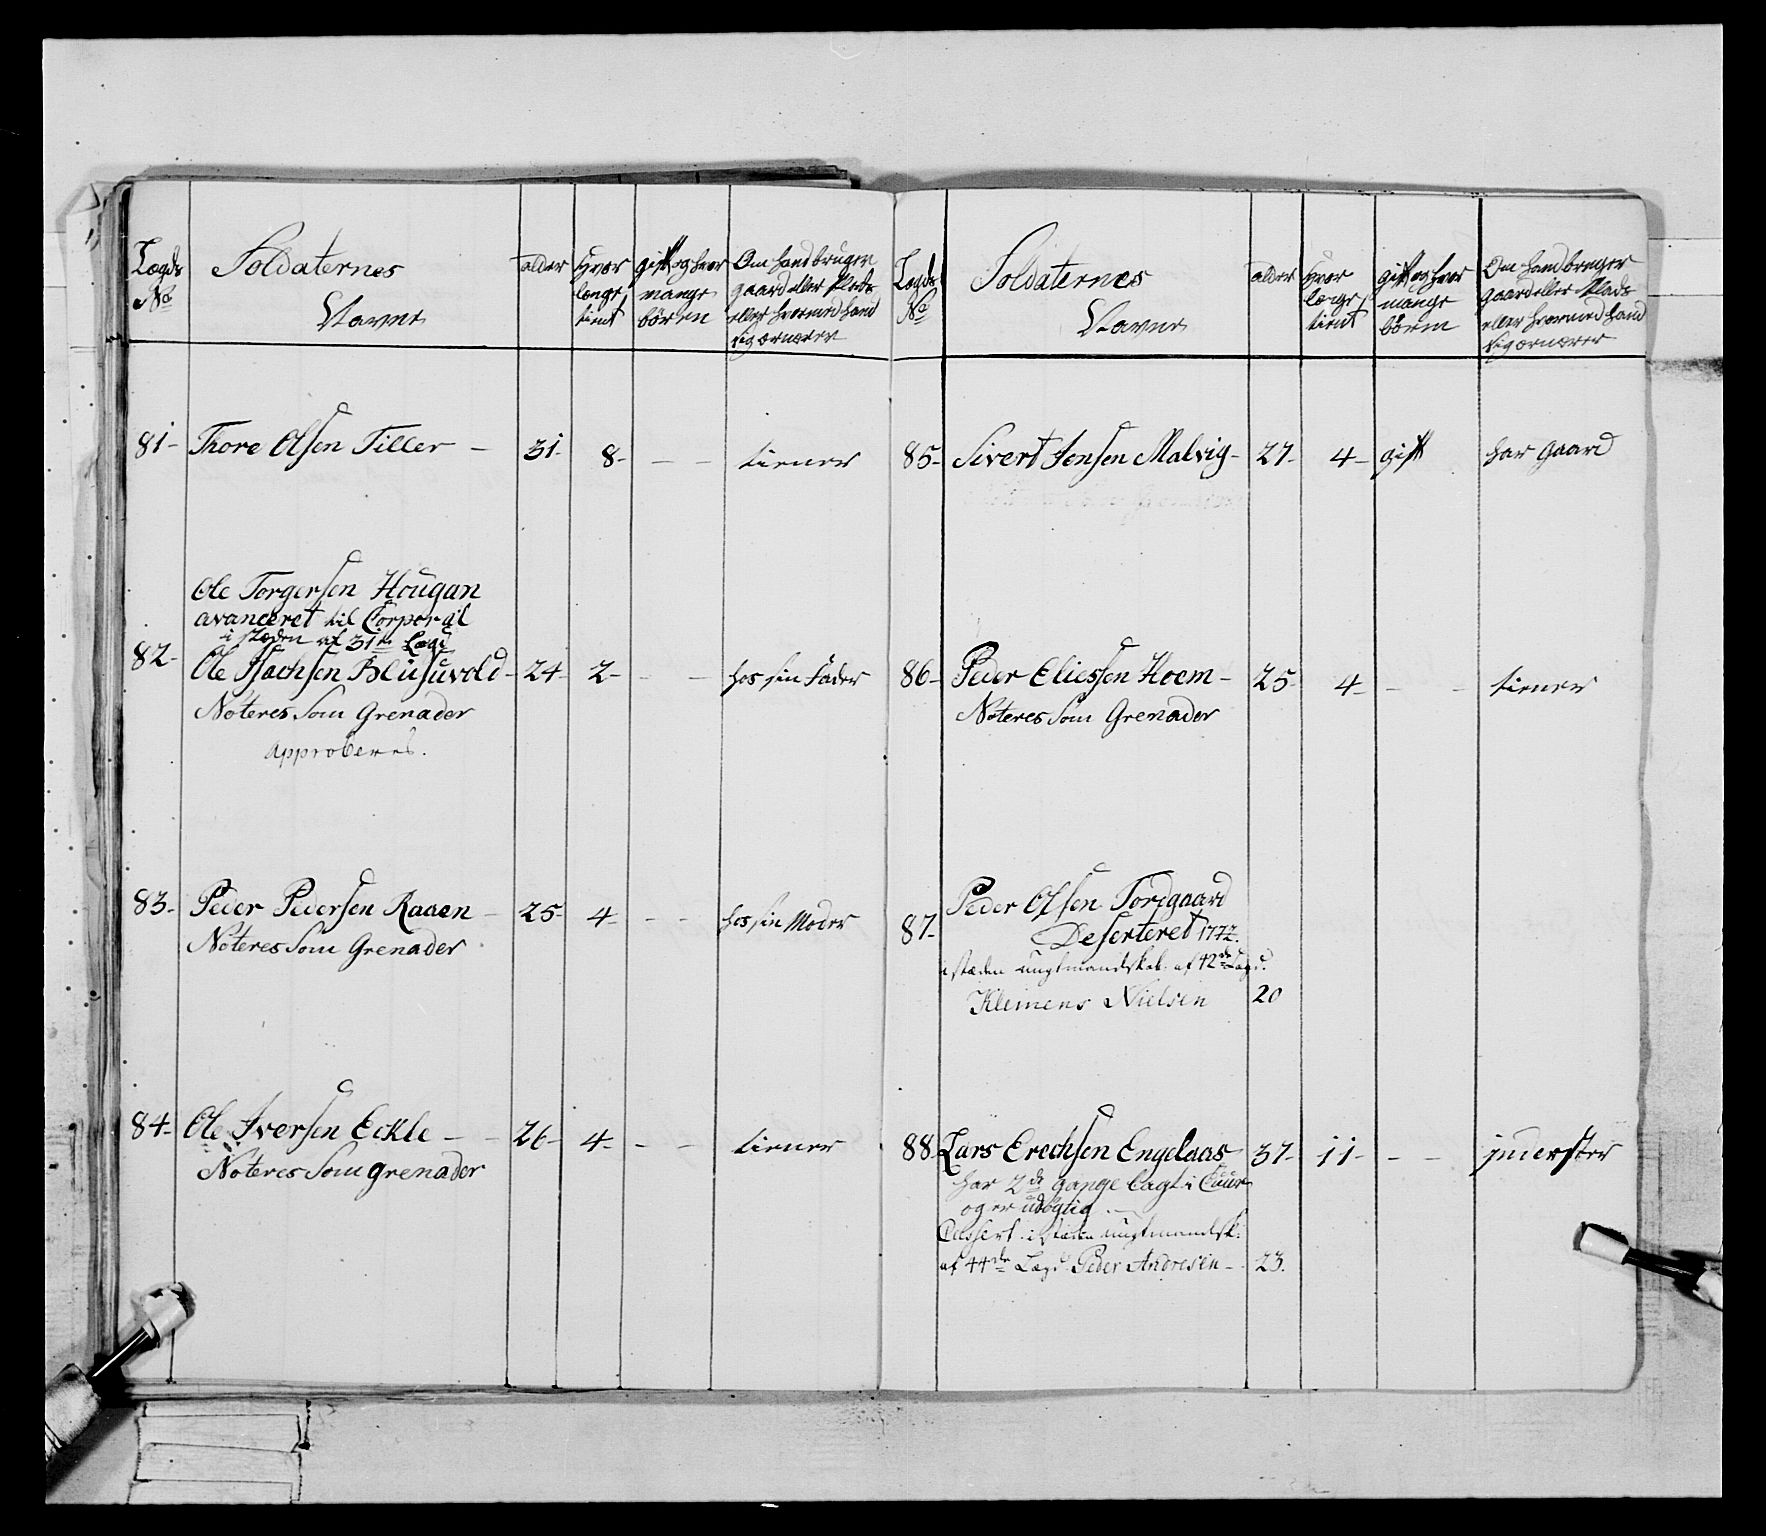 Lægds
No
Soldaternes
Navne
alder
Hvor
længe
tient
gift og hvor
mange
börn
Om hand bruger
gaard eller Plads
eller hvormed hand
sig ærnærer
81- Thore Olsen Tiller - 31- 8- - - tiener
Ole Torgersen Hougan
avanceret til Corporal
i stæden af 31te Lægd
82- Ole Isachsen - 24- 2- - - hos sin Fader
Noteres som Grenader
approberes.
83- Peder Pedersen Raaen - 25- 4- - - hos sin Moder
Noteres som Grenader
84- Ole Iversen Eckle - - 26- 4- - - tiener
Noteres som grenader
Lægds
No
Soldaternes
Navne
alder
Hvor
længe
tient
gift og hvor
mange
börn
Om hand bruger
gaard eller Plads
eller hvormed hand
sig ærnærer
85- Sivert Jensen Malvig- 27- 4- gift har Gaard
86- Peder Eliessen Hoem- 25- 4- - - tiener
Noteres som Grenader
Peder Olsen Torpgaard
87- Deserteret 1772.
i stæden ungtmandskab. af 42de Lægd.
Klemens Nielsen 20
88 Lars Erechsen Engelaas 37- 11- - - inderster
har 2de gange lagt i Cuur
og er udögtig.
Cassert. i stæden ungtmandsk:
af 44de Lægd Peder Andresen - 23.